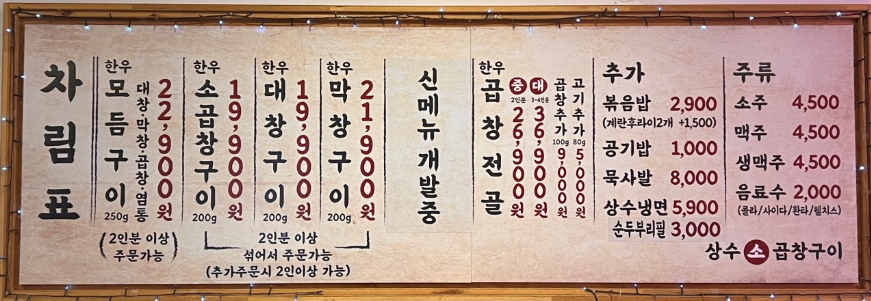 차림표
한우
모듬구이
250g
대창·막창·곱창·염통
22,900원
(2인분 이상
주문가능)
한우
소곱창구이
200g
19,900원
한우
대창구이
200g
19,900원
한우
막창구이
200g
21,900원
2인분 이상
섞어서 주문가능
(추가주문시 2인이상 가능)
신메뉴개발중
한우
곱창전골
중
2인분
26,900원
대
3~4인분
36,900원
곱창추가
100g
9,000원
고기추가
80g
5,000원
추가
볶음밥 2,900
(계란후라이2개 +1,500)
공기밥 1,000
묵사발 8,000
상수냉면 5,900
순두부리필 3,000
주류
소주 4,500
맥주 4,500
생맥주 4,500
음료수 2,000
(콜라/사이다/환타/웰치스)
상수 소 곱창구이